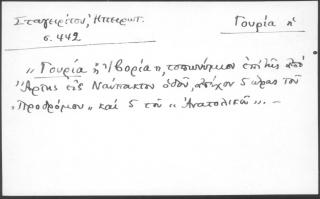 Σταγειρίτου, Ηπειρωτ.
Γουρία ἡ
σ. 442
"Γουρία ἢ Βορία η, τοπωνύμιον ἐπὶ τῆς ἀπὸ
Ἄρτης εἰς Ναύπακτον ὁδοῦ, ἀπέχον 5 ὥρας τοῦ
"Προδρόμου" καὶ 5 τοῦ "Ἀνατολικοῦ". —